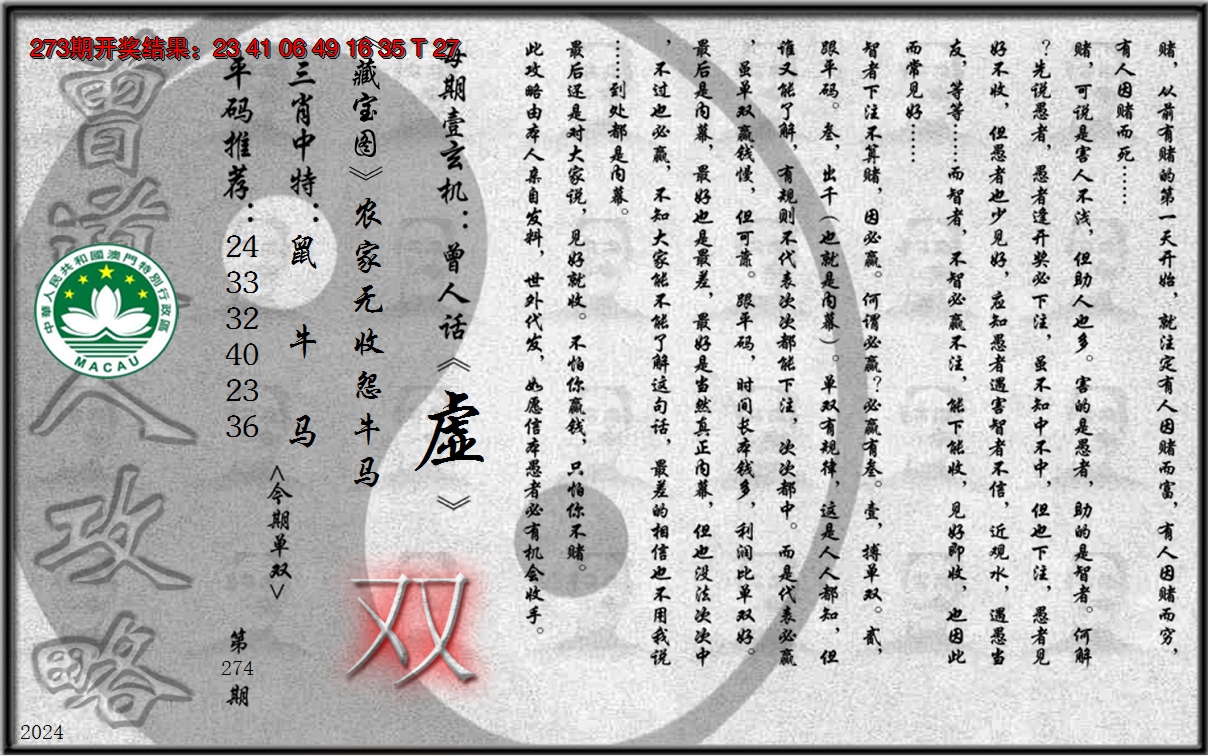 273期开奖结果：23 41 06 49 16 35 T 27
赌，从前有赌的第一天开始，就注定有人因赌而富，有人因赌而穷，
有人因赌而死……
赌，可说是害人不浅，但助人也多。害的是愚者，助的是智者。何解
？先说愚者，愚者逢开奖必下注，虽不知中不中，但也下注，愚者见
好不收，但愚者也少见好，应知愚者遇害智者不信，近观水，遇愚当
友，等等……而智者，不智必赢不注，能下能收，见好即收，也因此
而常见好……
智者下注不算赌，因必赢。何谓必赢？必赢有叁。壹，搏单双。贰，
跟平码。叁，出千（也就是内幕）。单双有规律，这是人人都知，但
谁又能了解，有规则不代表次次都能下注，次次都中。而是代表必赢
，虽单双赢钱慢，但可靠。跟平码，时间长本钱多，利润比单双好。
最后是内幕，最好也是最差，最好是当然真正内幕，但也没法次次中
，不过也必赢，不知大家能不能了解这句话，最差的相信也不用我说
……到处都是内幕。
最后还是对大家说，见好就收。不怕你赢钱，只怕你不赌。
此攻略由本人亲自发料，世外代发，如愿信本愚者必有机会收手。
每期壹玄机：曾人话《虚》
《藏宝图》农家无收怨牛马
双
三肖中特：鼠 牛 马
<今期单双>
平码推荐：
24
33
32
40
23
36
第
274
期
曾道人攻略
中華人民共和國澳門特別行政區
MACAU
2024